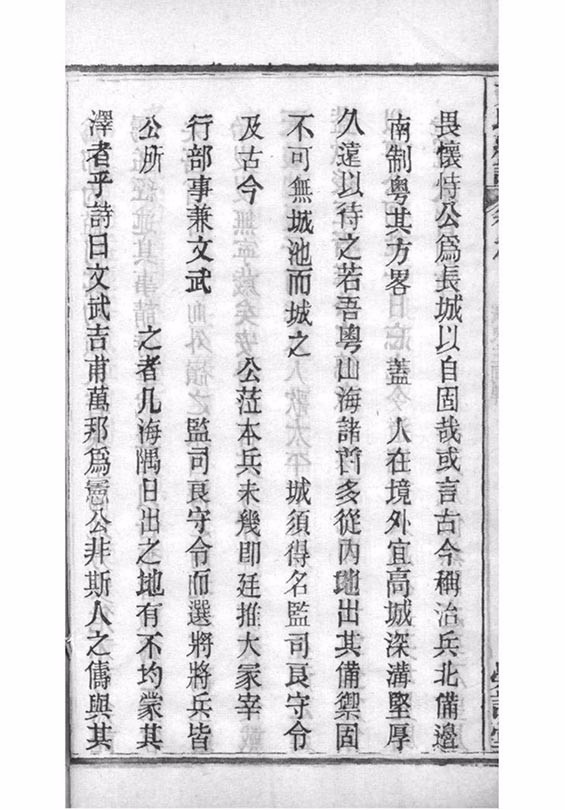 畏懷恃公爲長城以自固哉或言古今稱治兵北備邊
南制粤其方畧 蓋 人在境外宜高城深溝堅厚
久遠以待之若吾粤山海諸 多從內地出其備禦固
不可無城池而城之 城須得名監司良守令
及古今 公蒞本兵未幾即廷推大冢宰
行部事兼文武 監司良守令而選將將兵皆
公所 之者凡海隅日出之地有不均蒙其
澤者乎詩曰文武吉甫萬邦爲憲公非斯人之儔與其